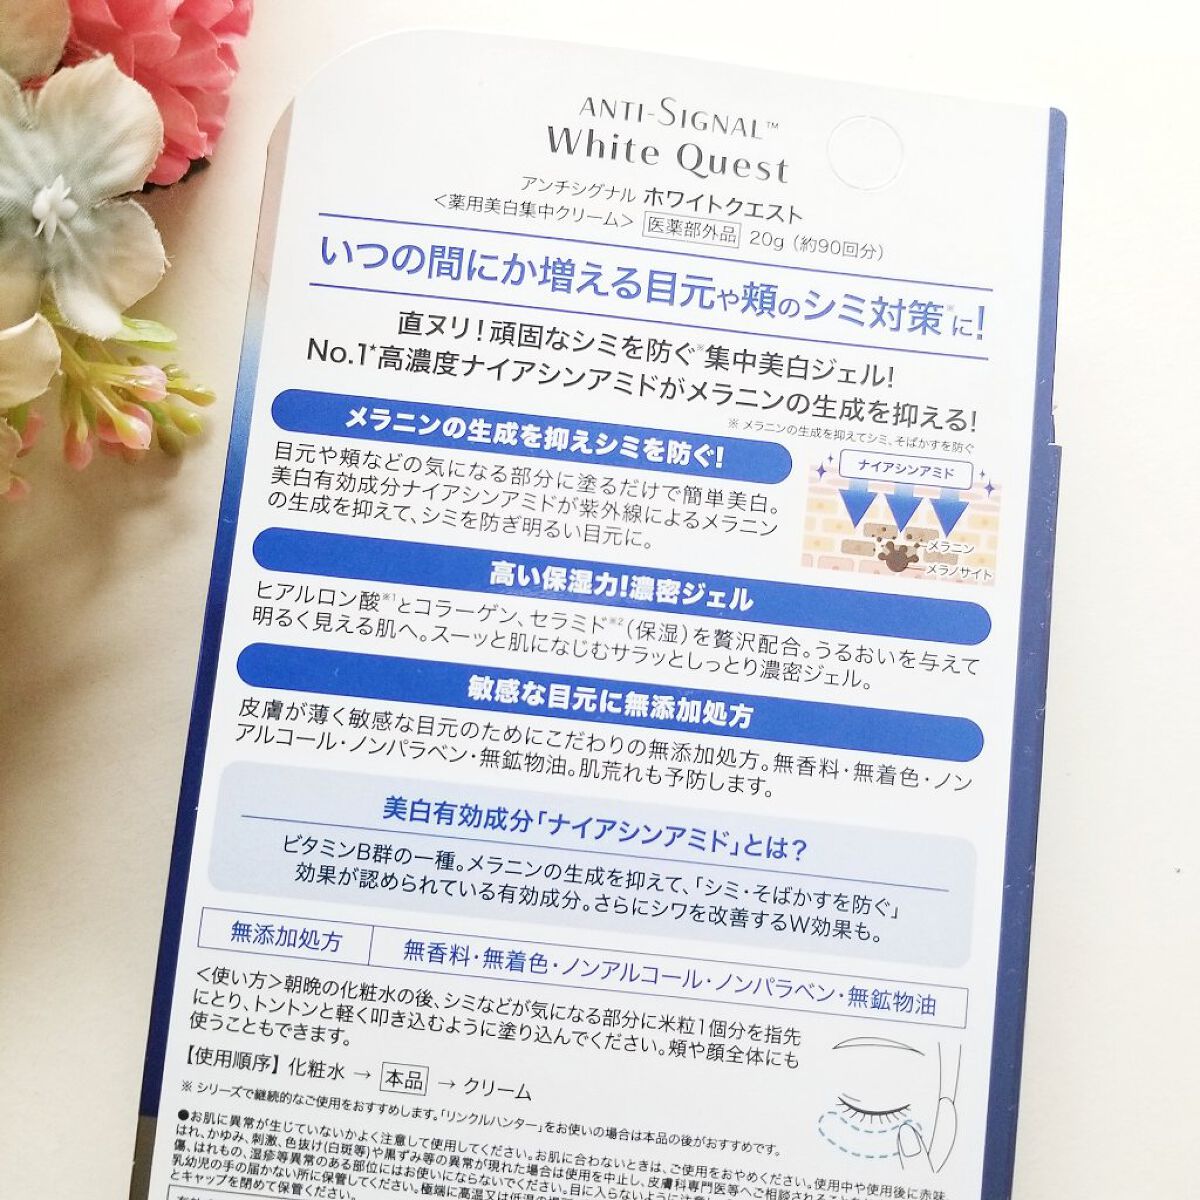 ANTI-SIGNAL™
White Quest
アンチシグナル ホワイトクエスト
<薬用美白集中クリーム> 医薬部外品 20g (約90回分)
いつの間にか増える目元や頬のシミ対策※に!
直ヌリ!頑固なシミを防ぐ※集中美白ジェル!
No.1*高濃度ナイアシンアミドがメラニンの生成を抑える!
※ メラニンの生成を抑えてシミ、そばかすを防ぐ
メラニンの生成を抑えシミを防ぐ!
目元や頬などの気になる部分に塗るだけで簡単美白。
美白有効成分ナイアシンアミドが紫外線によるメラニン
の生成を抑えて、シミを防ぎ明るい目元に。
ナイアシンアミド
メラニン
メラノサイト
高い保湿力!濃密ジェル
ヒアルロン酸※1とコラーゲン、セラミド※2(保湿)を贅沢配合。うるおいを与えて
明るく見える肌へ。スーッと肌になじむサラッとしっとり濃密ジェル。
敏感な目元に無添加処方
皮膚が薄く敏感な目元のためにこだわりの無添加処方。無香料・無着色・ノン
アルコール・ノンパラベン・無鉱物油。肌荒れも予防します。
美白有効成分「ナイアシンアミド」とは?
ビタミンB群の一種。メラニンの生成を抑えて、「シミ・そばかすを防ぐ」
効果が認められている有効成分。さらにシワを改善するW効果も。
無添加処方 無香料・無着色・ノンアルコール・ノンパラベン・無鉱物油
<使い方>朝晩の化粧水の後、シミなどが気になる部分に米粒1個分を指先
にとり、トントンと軽く叩き込むように塗り込んでください。頬や顔全体にも
使うこともできます。
【使用順序】化粧水 → 本品 → クリーム
※ シリーズで継続的なご使用をおすすめします。「リンクルハンター」をお使いの場合は本品の後がおすすめです。
●お肌に異常が生じていないかよく注意して使用してください。お肌に合わないときは、ご使用をおやめください。使用中や使用後に赤味
はれ、かゆみ、刺激、色抜け(白斑等)や黒ずみ等の異常が現れた場合は使用を中止し、皮膚科専門医等へご相談される
傷、はれもの、湿疹等異常のある部位にはお使いにならないでください。目に入らないように
乳幼児の手の届かない所に保管してください。極端に高温又は低温の
とキャップを閉めて保管ください。